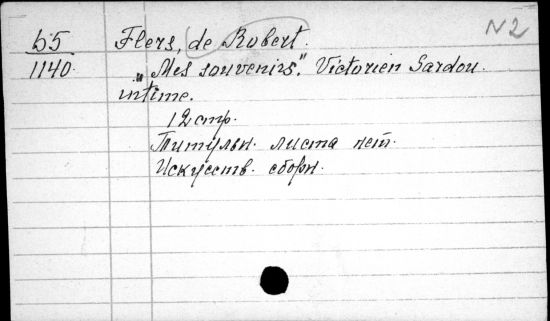 N2
b5
1140.
Flers, de Robert.
„Mes souvenirs". Victorien Sardou
intime.
12 стр.
Титульн. листа нет.
Искусств. сборн.